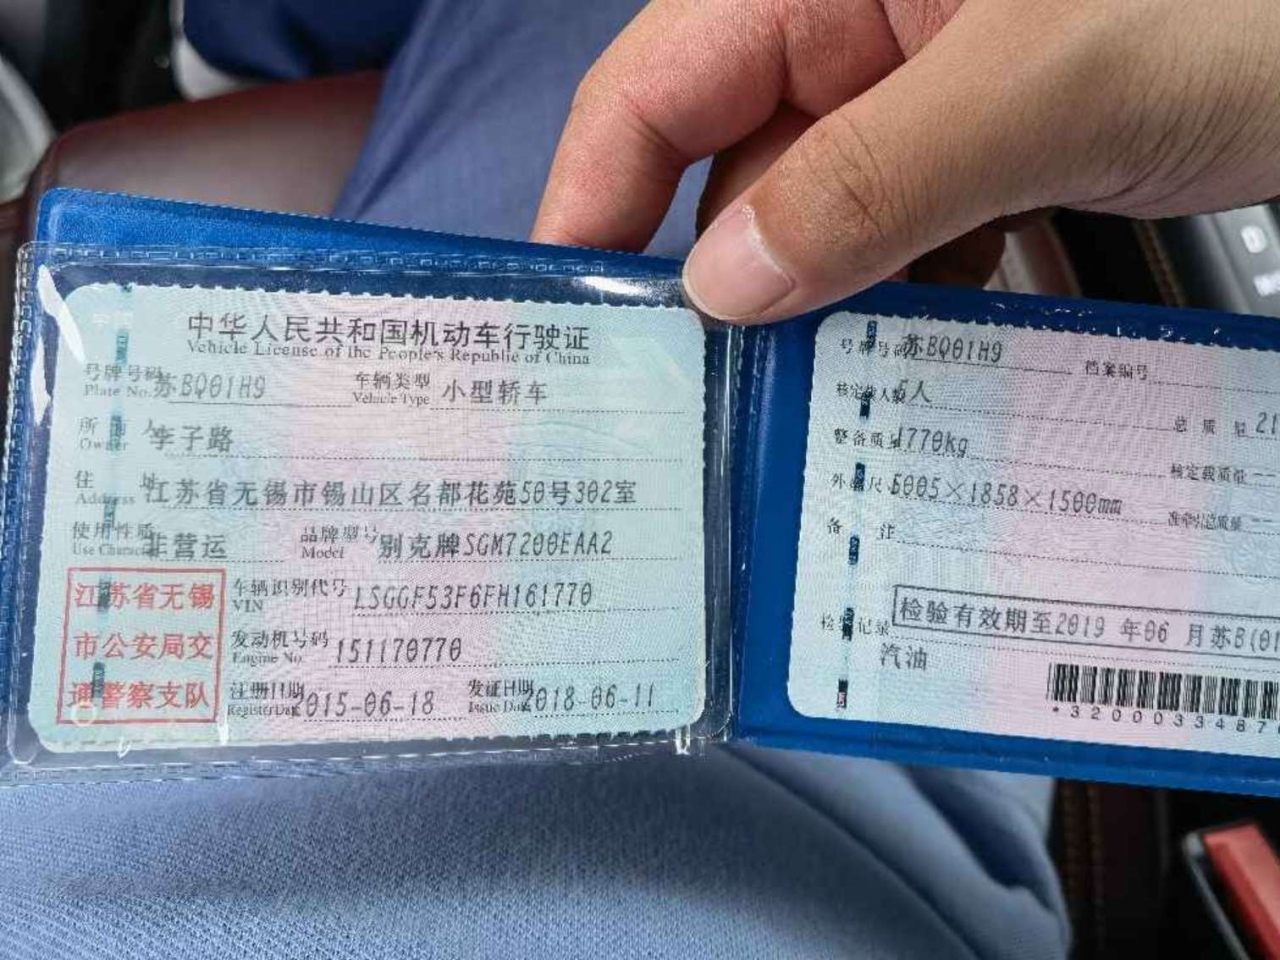 中华人民共和国机动车行驶证
Vehicle License of the People's Republic of China
号牌号码 苏BQ01H9 车辆类型 小型轿车
Plate No. Vehicle Type
所 有 人 李子路
Owner
住 址 江苏省无锡市锡山区名都花苑50号302室
Address
使用性质 非营运 品牌型号 别克牌SGM7200EAA2
Use Character Model
江苏省无锡
市公安局交
通警察支队
车辆识别代号 LSGGF53F6FH161770
VIN
发动机号码 151170770
Engine No.
注册日期 2015-06-18 发证日期 2018-06-11
Register Date Issue Date
号牌号码 苏BQ01H9 档案编号
核定载人数 5人 总 质 量 21
整备质量 1770kg 核定载质量 --
外廓尺寸 5005×1858×1500mm 准牵引总质量 --
备 注
检验记录 检验有效期至2019 年06 月苏B(01
汽油
*3200033487